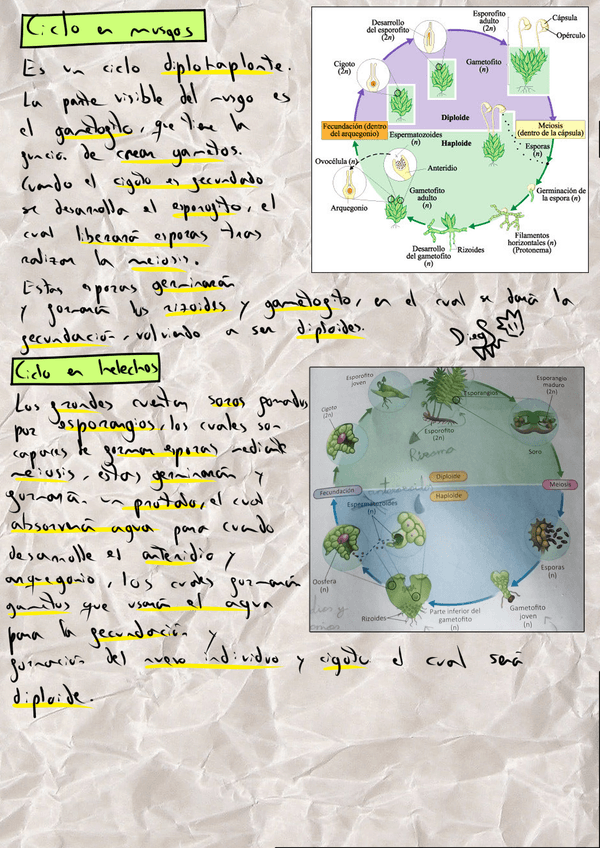 Ciclo en musgos
Es un ciclo diplohaplonte.
La parte visible del musgo es
el gametofito, que tiene la
función de crear gametos.
Cuando el cigoto es fecundado
se desarrolla el esporofito, el
cual liberará esporas tras
realizar la meiosis.
Estas esporas germinarán
y formarán los rizoides y gametofito, en el cual se dará la
fecundación, volviendo a ser diploides.
Diego
Desarrollo
del esporofito
(2n)
Esporofito
adulto
(2n)
Cápsula
Opérculo
Cigoto
(2n)
Gametofito
(n)
Diploide
Fecundación (dentro
del arquegonio)
Espermatozoides
(n)
Haploide
Meiosis
(dentro de la cápsula)
Esporas
(n)
Ovocélula (n)
Anteridio
Arquegonio
Gametofito
adulto
(n)
Germinación de
la espora (n)
Desarrollo
del gametofito
(n)
Rizoides
Filamentos
horizontales (n)
(Protonema)
Ciclo en helechos
Los frondes cuentan soros formados
por esporangios, los cuales son
capaces de formar esporas mediante
meiosis, estas germinarán y
formarán un protalo, el cual
absorverá agua para cuando
desarrolle el anteridio y
arquegonio, los cuales formarán
gametos que usarán el agua
para la fecundación y
formación del nuevo individuo y cigoto el cual será
diploide.
Esporofito
joven
Esporangios
Esporangio
maduro
(2n)
Cigoto
(2n)
Esporofito
(2n)
Rizoma
Soro
Diploide
Fecundación
Meiosis
Haploide
Espermatozoides
(n)
Oosfera
(n)
Esporas
(n)
Rizoides
Parte inferior del
gametofito
(n)
Gametofito
joven
(n)